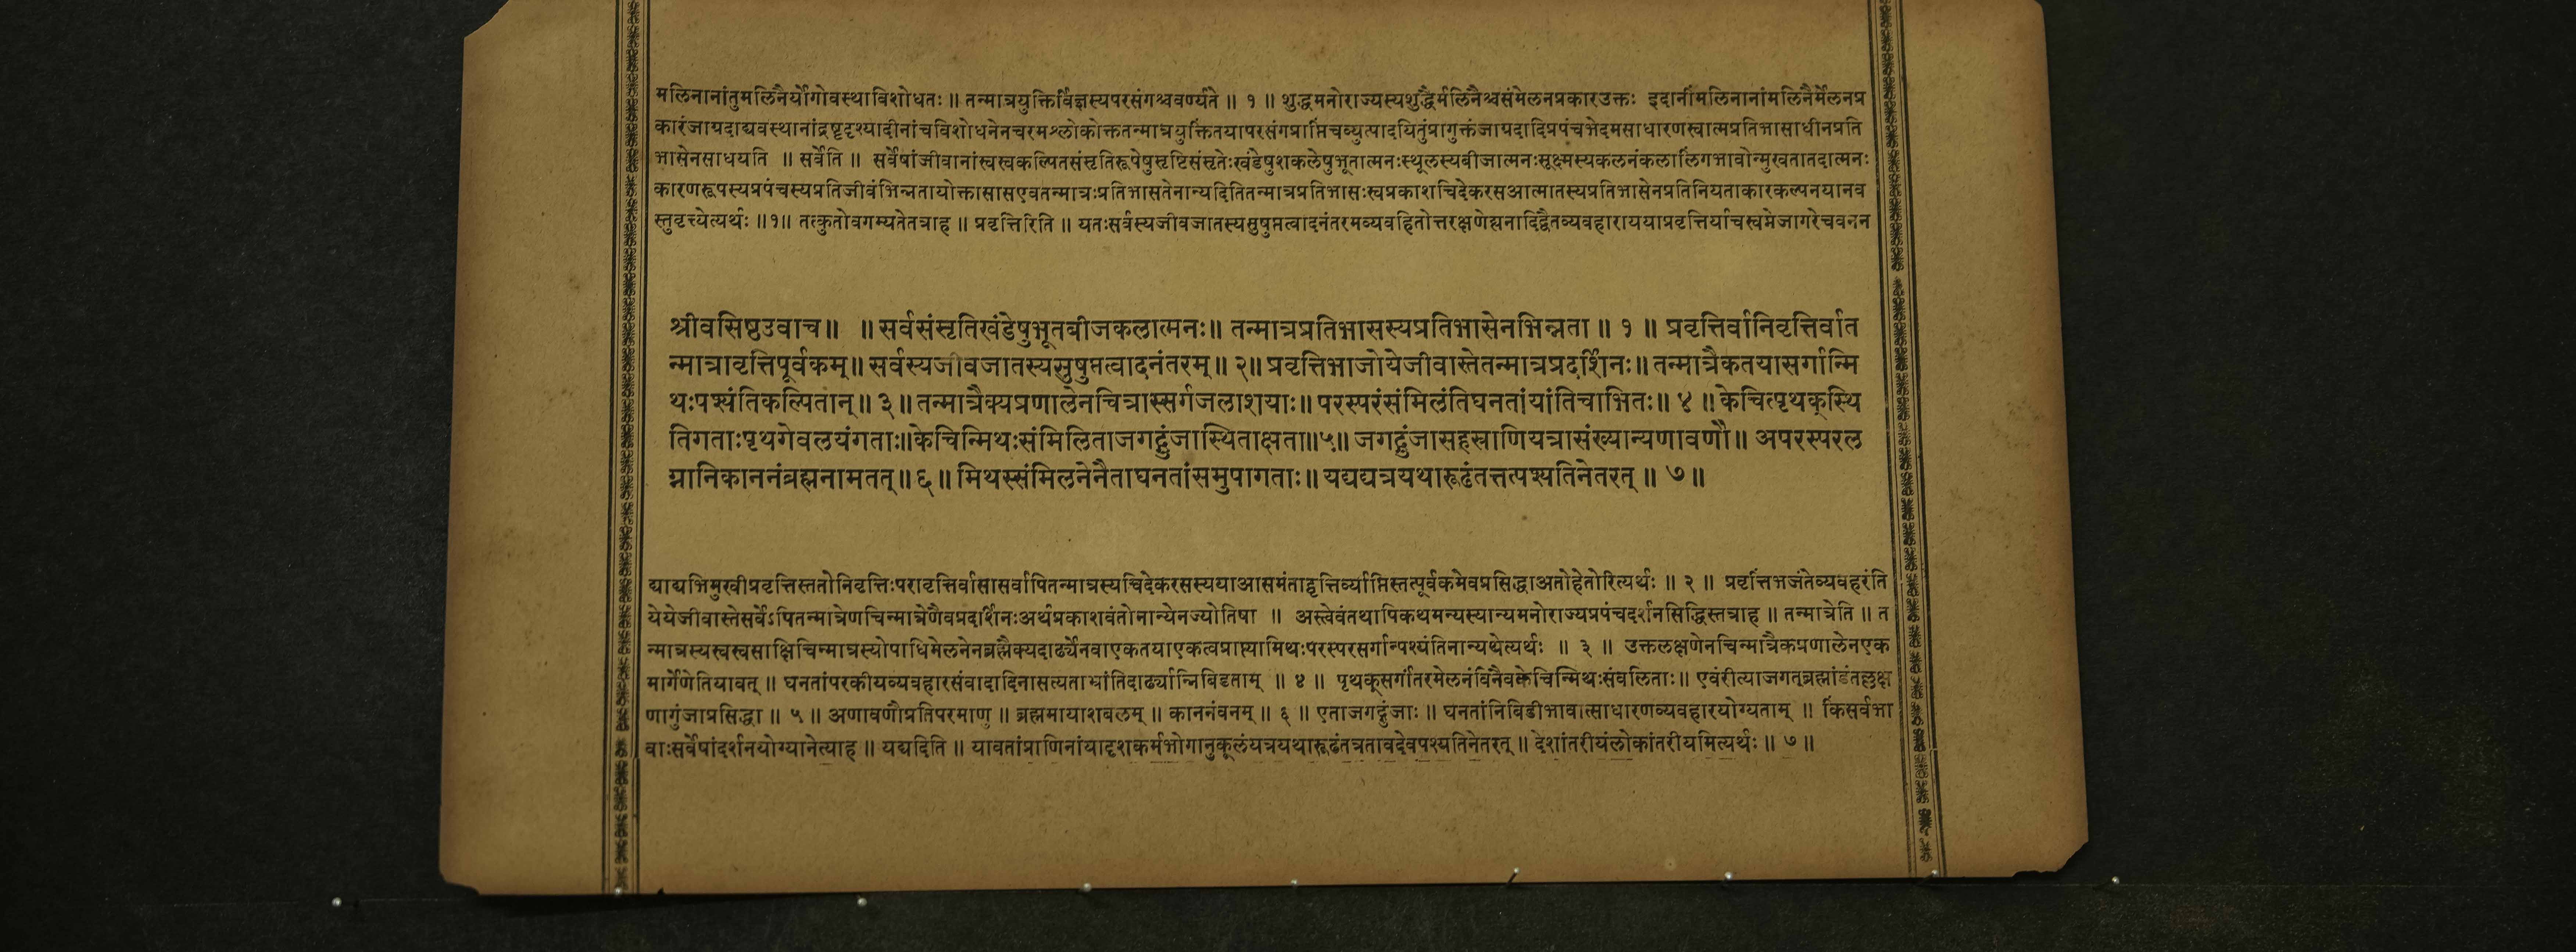 मलिनानांतुमलिनैर्योगोवस्थाविशोधतः ॥ तन्मात्रयुक्तिर्विज्ञस्यपरसंगश्चवर्ण्यते ॥ १ ॥ शुद्धमनोराज्यस्यशुद्धैर्मलिनैश्चसंमेलनप्रकारउक्तः इदानींमलिनानांमलिनैर्मेलनप्र
कारंजाग्रदाद्यवस्थानांद्रष्टृदृश्यादीनांचविशोधनेनचरमश्लोकोक्ततन्मात्रयुक्तितयापरसंगप्राप्तिंचव्युत्पादयितुंप्रागुक्तंजाग्रदादिप्रपंचभेदमसाधारणस्वात्मप्रतिभासाधीनप्रति
भासेनसाधयति ॥ सर्वेति ॥ सर्वेषांजीवानांस्वस्वकल्पितसंसृतिरूपेषुसृष्टिसंसृतेःखंडेषुशकलेषुभूतात्मनःस्थूलस्यबीजात्मनःसूक्ष्मस्यकलनंकलालिंगभावोन्मुखतातदात्मनः
कारणरूपस्यप्रपंचस्यप्रतिजीवंभिन्नतायोक्तासासएवतन्मात्रःप्रतिभासतेनान्यदितितन्मात्रप्रतिभासःस्वप्रकाशचिदेकरसआत्मातस्यप्रतिभासेनप्रतिनियताकारकल्पनयानव
स्तुवृत्त्येत्यर्थः ॥१॥ तत्कुतोवगम्यतेतत्राह ॥ प्रवृत्तिरिति ॥ यतःसर्वस्यजीवजातस्यसुषुप्तत्वादनंतरमव्यवहितोत्तरक्षणेह्यनादिद्वैतव्यवहाराययाप्रवृत्तिर्याचस्वप्नेजागरेचवनन
श्रीवसिष्ठउवाच॥ ॥ सर्वसंसृतिखंडेषुभूतबीजकलात्मनः॥ तन्मात्रप्रतिभासस्यप्रतिभासेनभिन्नता ॥ १ ॥ प्रवृत्तिर्वानिवृत्तिर्वात
न्मात्रावृत्तिपूर्वकम्॥ सर्वस्यजीवजातस्यसुषुप्तत्वादनंतरम्॥ २॥ प्रवृत्तिभाजोयेजीवास्तेतन्मात्रप्रदर्शिनः॥ तन्मात्रैकतयासर्गान्मि
थःपश्यंतिकल्पितान्॥ ३॥ तन्मात्रैक्यप्रणालेनचित्रास्सर्गजलाशयाः॥ परस्परंसंमिलंतिघनतांयांतिचाभितः॥ ४ ॥ केचित्पृथक्स्थि
तिगताःपृथगेवलयंगताः॥केचिन्मिथःसंमिलिताजगद्गुंजास्थिताक्षता॥५॥ जगद्गुंजासहस्राणियत्रासंख्यान्यणावणौ॥ अपरस्परल
ग्नानिकाननंब्रह्मनामतत्॥ ६॥ मिथस्संमिलनेनैताघनतांसमुपागताः॥ यद्यद्यत्रयथारूढंतत्तत्पश्यतिनेतरत् ॥ ७॥
द्याद्यभिमुखीप्रवृत्तिस्ततोनिवृत्तिःपरावृत्तिर्वासासर्वापितन्मात्रस्यचिदेकरसस्ययाआसमंताद्वृत्तिर्व्याप्तिस्तत्पूर्वकमेवप्रसिद्धाअतोहेतोरित्यर्थः ॥ २ ॥ प्रवृत्तिंभजंतेव्यवहरंति
येयेजीवास्तेसर्वेऽपितन्मात्रेणचिन्मात्रेणैवप्रदर्शिनःअर्थप्रकाशवंतोनान्येनज्योतिषा ॥ अस्त्वेवंतथापिकथमन्यस्यान्यमनोराज्यप्रपंचदर्शनसिद्धिस्तत्राह ॥ तन्मात्रेति ॥ त
न्मात्रस्यस्वस्वसाक्षिचिन्मात्रस्योपाधिमेलनेनब्रह्मैक्यदार्ढ्येनवाएकतयाएकत्वप्राप्त्यामिथःपरस्परसर्गान्पश्यंतिनान्यथेत्यर्थः ॥ ३ ॥ उक्तलक्षणेनचिन्मात्रैकप्रणालेनएक
मार्गेणेतियावत् ॥ घनतांपरकीयव्यवहारसंवादादिनासत्यताभ्रांतिदार्ढ्यान्निबिडताम् ॥ ४ ॥ पृथक्सर्गांतरमेलनंविनैवकेचिन्मिथःसंवलिताः॥ एवंरीत्याजगत्ब्रह्मांडंतल्लक्ष
णागुंजाप्रसिद्धा ॥ ५ ॥ अणावणौप्रतिपरमाणु ॥ ब्रह्ममायाशबलम् ॥ काननंवनम् ॥ ६ ॥ एताजगद्गुंजाः ॥ घनतांनिबिडीभावात्साधारणव्यवहारयोग्यताम् ॥ किंसर्वभा
वाःसर्वेषांदर्शनयोग्यानेत्याह ॥ यद्यदिति ॥ यावतांप्राणिनांयादृशकर्मभोगानुकूलंयत्रयथारूढंतत्रतावदेवपश्यतिनेतरत् ॥ देशांतरीयंलोकांतरीयमित्यर्थः ॥ ७ ॥